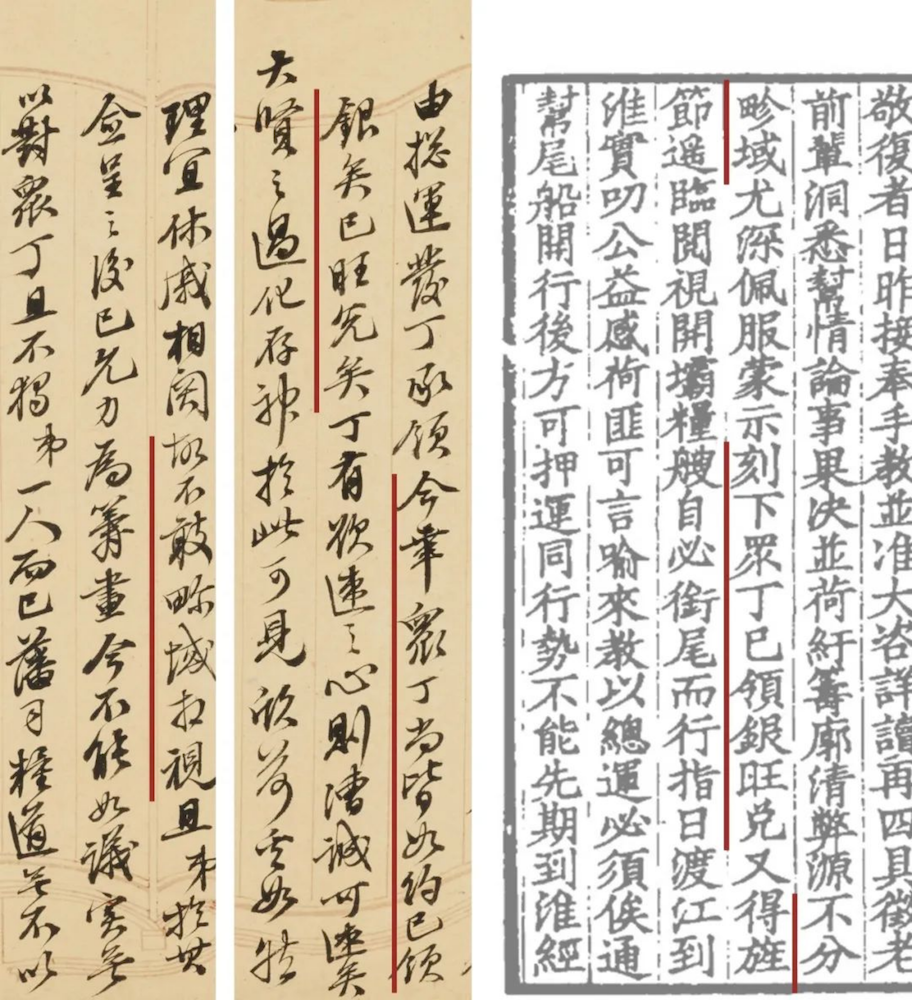 敬復者日昨接奉手教並准大咨詳讀再四具徵老
前輩洞悉幫情論事果決並荷紆籌廓清弊源不分
畛域尤深佩服蒙示刻下眾丁已領銀旺兌又得旌
節遥臨閲視開壩糧艘自必銜尾而行指日渡江到
淮實叨公益感荷匪可言喻來教以總運必須俟通
幫尾船開行後方可押運同行勢不能先期到淮經
由總運發丁承領今幸眾丁尚皆如約已領
銀矣已旺兌矣丁有欲速之心則漕誠可速矣
大賢之過化存神於此可見欣荷奚如特
理宜休戚相関故不敢畛域相視且弟於其
僉呈之後已允力為籌畫今不能如議實無
以對眾丁且不獨弟一人而已藩司糧道無不以